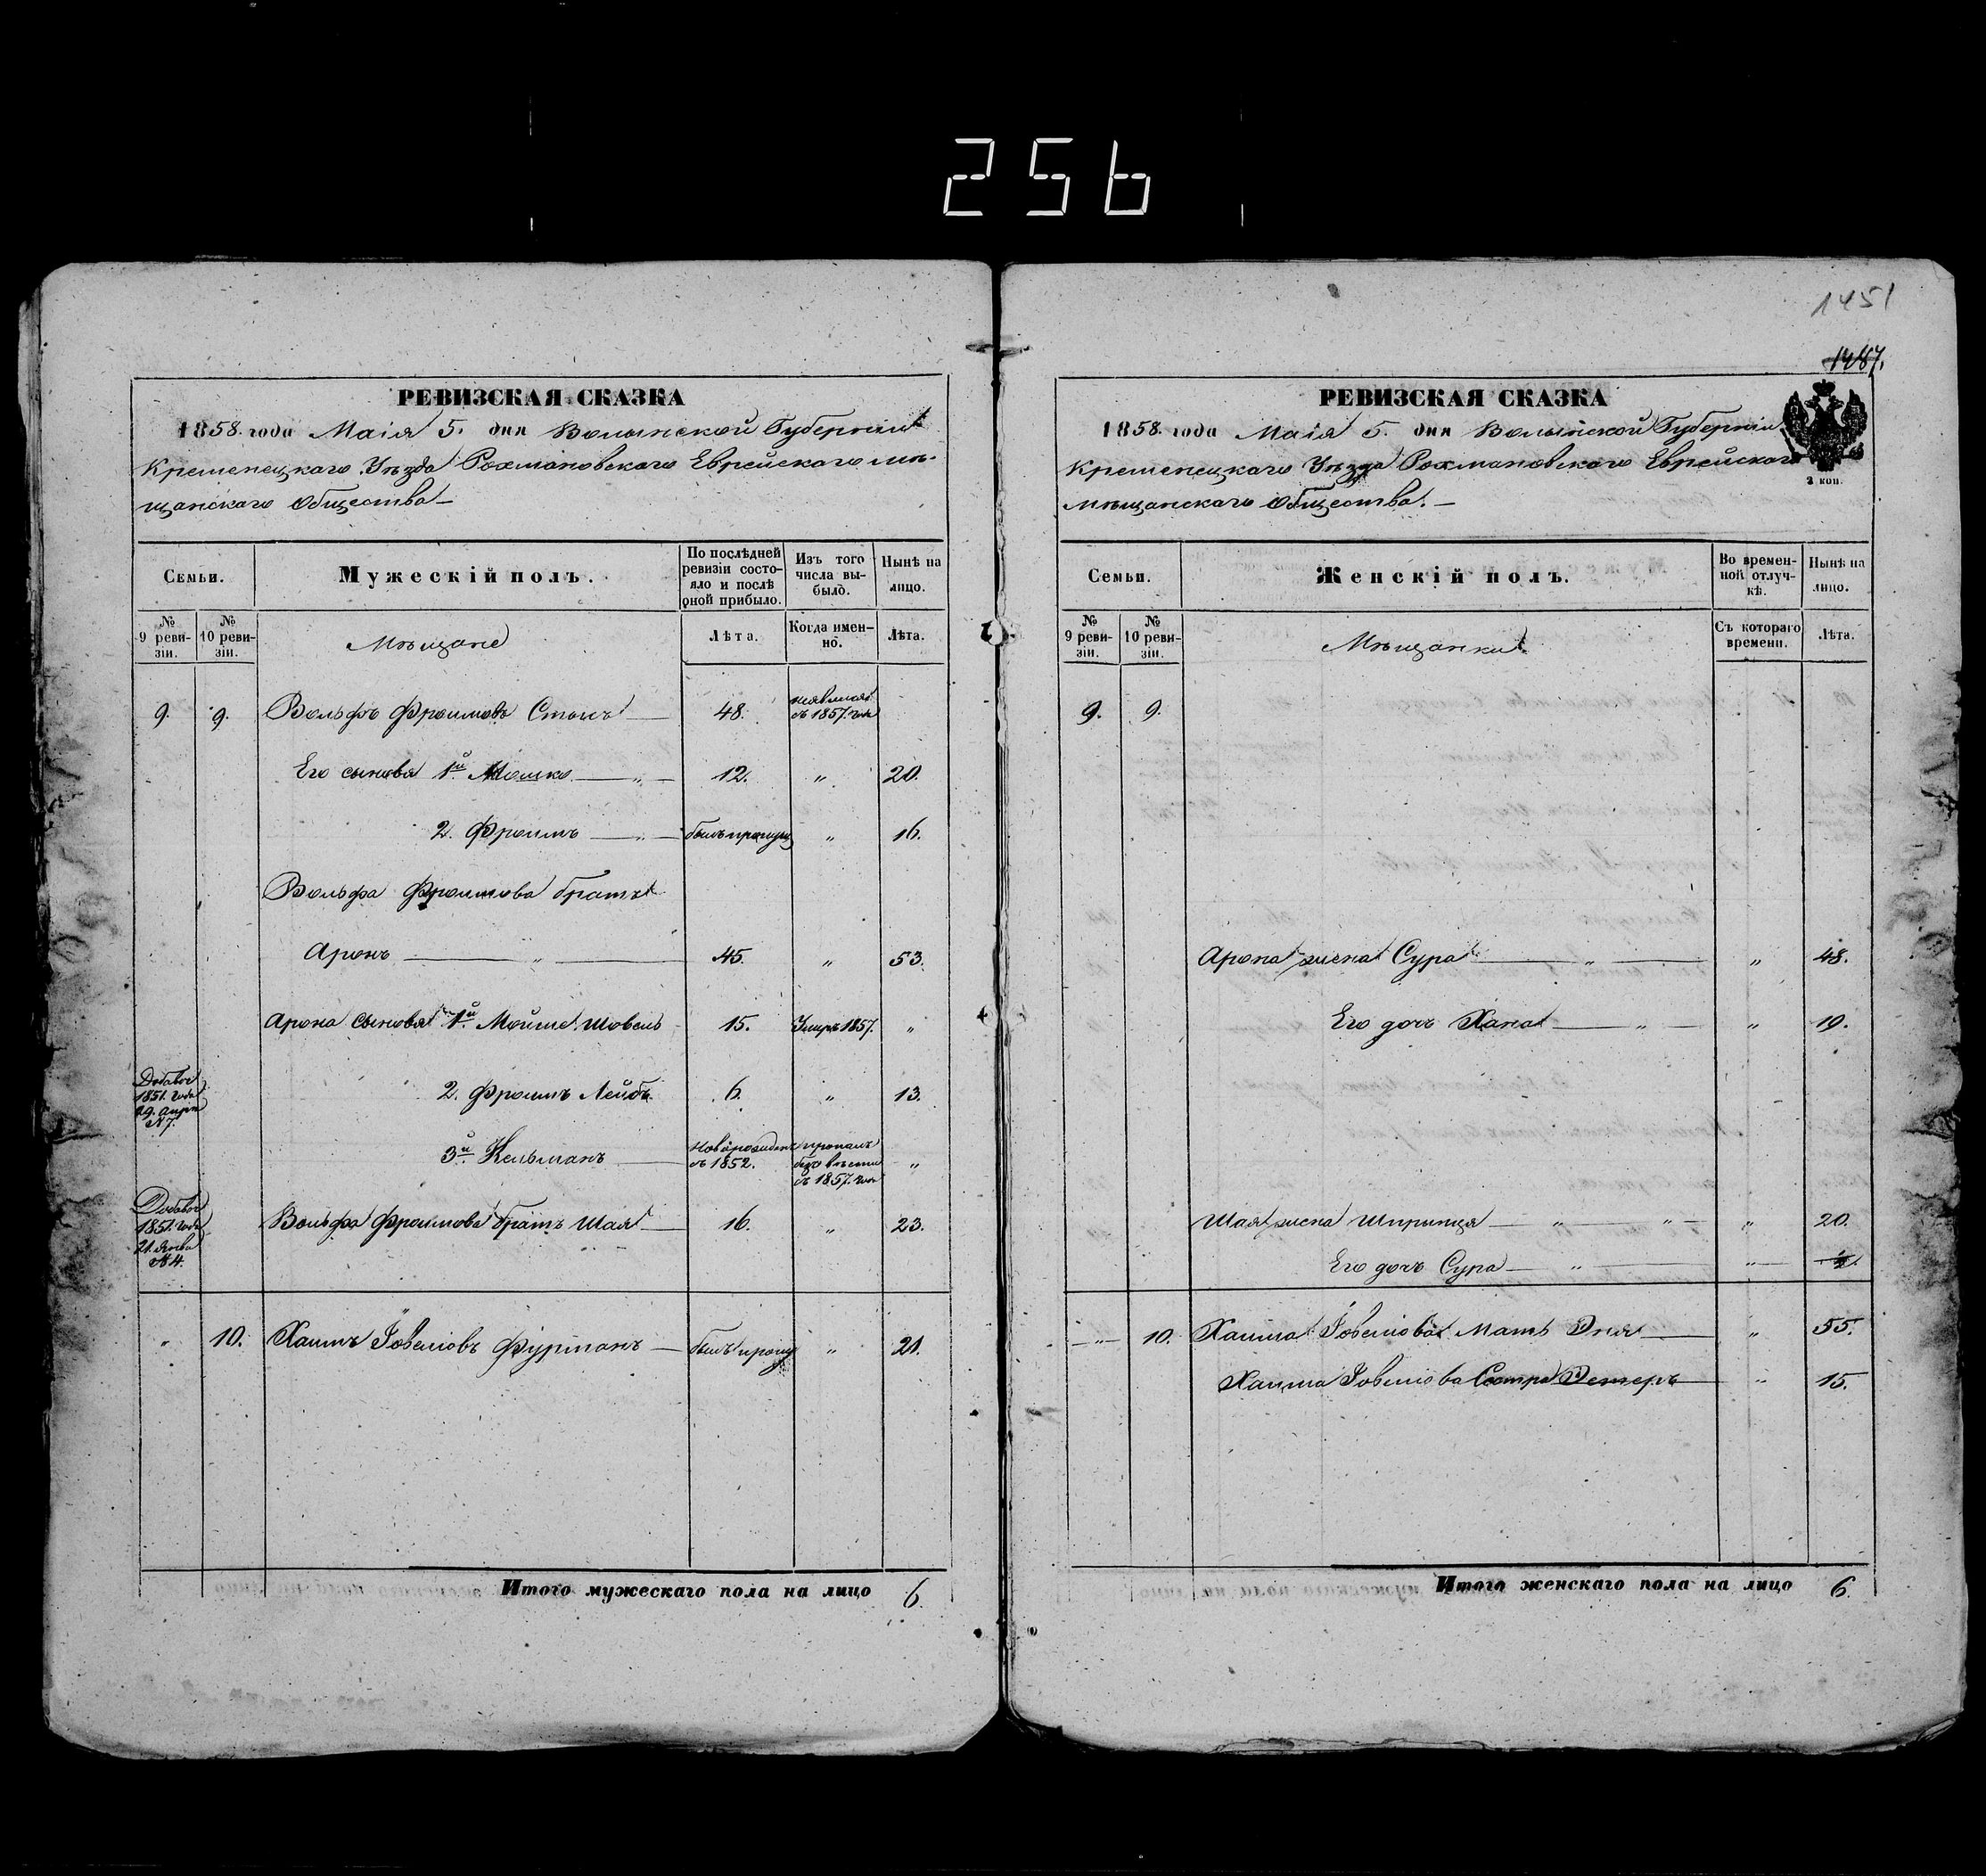 256
1451
1487.
РЕВИЗСКАЯ СКАЗКА
1858. года Маія 5. дня Волынской Губерніи
Кременецкаго Уѣзда Рохмановскаго Еврейскаго мѣ-
щанскаго Общества
Семьи.
Мужескій полъ.
По послѣдней ревизіи состояло и послѣ оной прибыло.
Изъ того числа выбыло.
Нынѣ на лицо.
№ 9 ревизіи.
№ 10 ревизіи.
Мѣщане
Лѣта.
Когда именно.
Лѣта.
9. 9. Вольфъ Фроимовъ 48. съ 1857. года
Его сыновья 1й Мошко " 12. " 20.
2. Фроимъ " былъ пропущ " 16.
Вольфа Фроимова братъ
Аронъ " 45. " 53.
Арона сыновья 1й Мойше Шовель 15. Умеръ 1857. "
Добавоч 1851. года №7.
2. Фроимъ Лейбъ 6. " 13.
3й Кельманъ новорожден съ 1852. пропалъ безъ вести съ 1857. года "
Добавоч 1851 года 21. №4.
Вольфа Фроимова братъ Шая 16. " 23.
" 10. Хаимъ Іовелiовъ Фурманъ былъ пропу " 21.
Итого мужескаго пола на лицо 6.
РЕВИЗСКАЯ СКАЗКА
1858. года Маія 5. дня Волынской Губерніи
Кременецкаго Уѣзда Рохмановскаго Еврейскаго
мѣщанскаго Общества.
2 коп.
Семьи.
Женскій полъ.
Во временной отлучкѣ.
Нынѣ на лицо.
№ 9 ревизіи.
№ 10 ревизіи.
Мѣщанки
Съ котораго времени.
Лѣта.
9. 9.
Арона жена Сура " " 48.
Его дочь Хана " " 19.
Шая жена Шпрынця " " " 20.
Его дочь Сура " "
" 10. Хаима Іовелiова Мать Эня " 55.
Хаима Іовелiова Сестра Эстеръ " 15.
Итого женскаго пола на лицо 6.